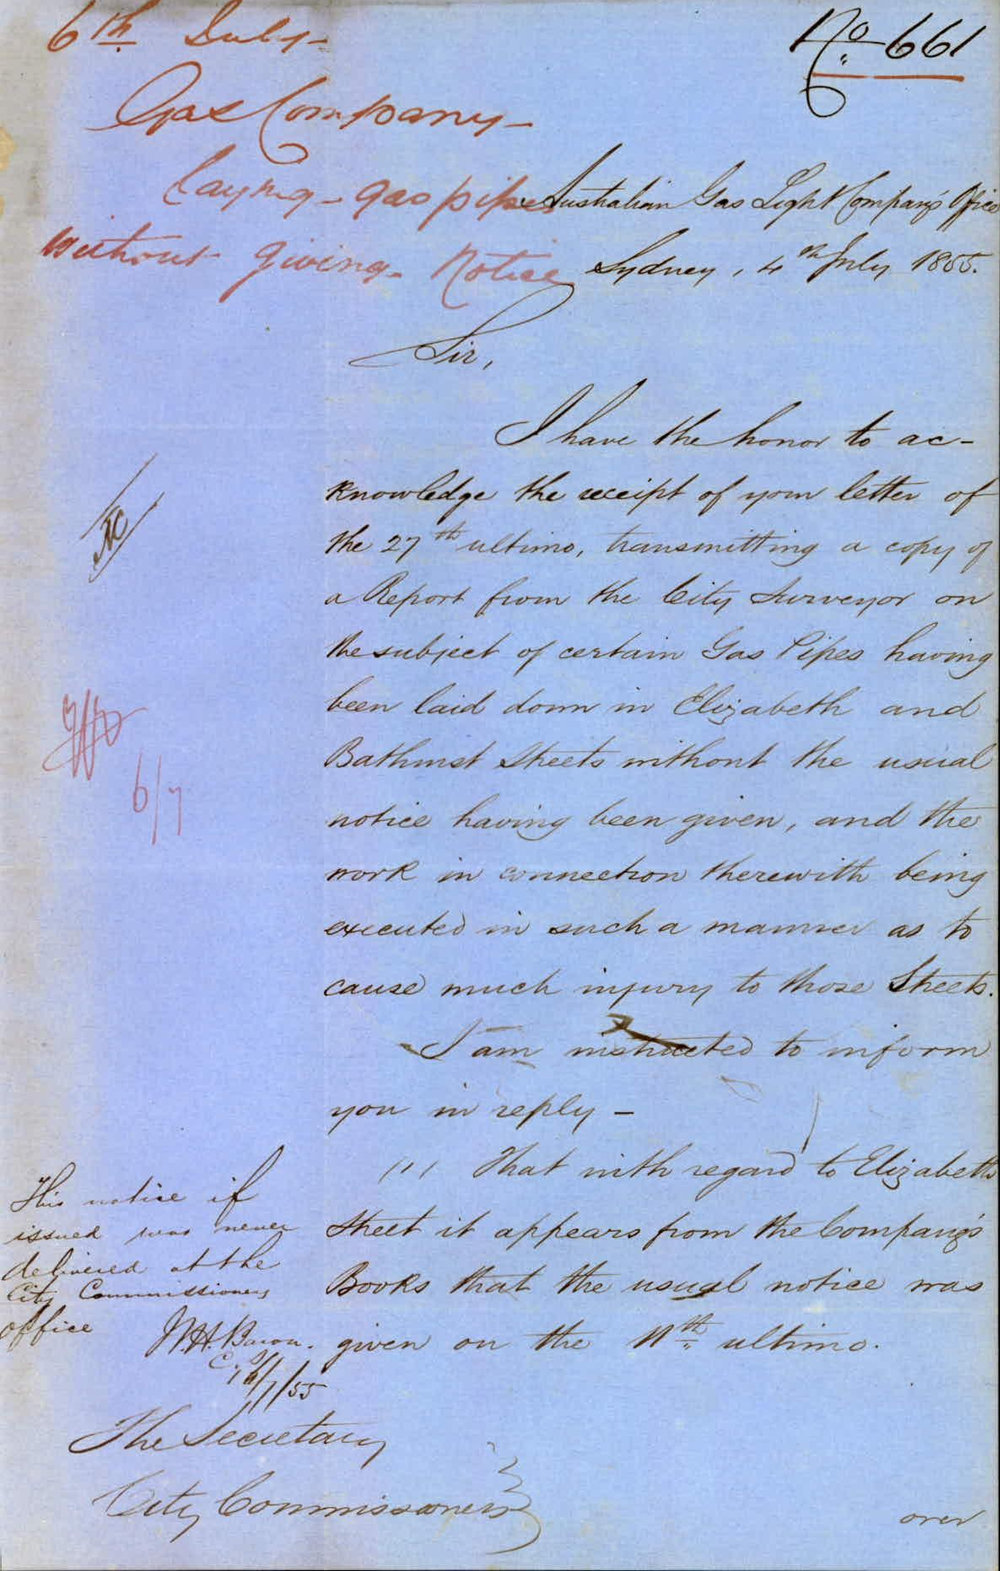 6th July -
No. 661
Gas Company -
laying - gas pipes
without giving - Notice
Australian Gas Light Company's Office
Sydney, 4th July 1855.
Sir,
I have the honor to ac-
knowledge the receipt of your letter of
the 27th ultimo, transmitting a copy of
a Report from the City Surveyor on
the subject of certain Gas Pipes having
been laid down in Elizabeth and
Bathurst Streets without the usual
notice having been given, and the
work in connection therewith being
executed in such a manner as to
cause much injury to those Streets.
I am instructed to inform
you in reply -
(1) That with regard to Elizabeth
Street it appears from the Company's
Books that the usual notice was
given on the 11th ultimo.
6/7
This notice if
issued was never
delivered at the
City Commissioners
office
The Secretary
City Commissioners
over